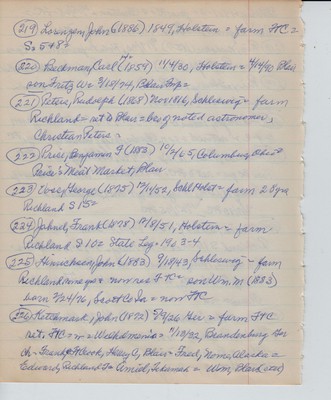 219 Lorenzen, John G (1886) 1849, Holstein = farm FtC =
S 20 5+8°
220 Beckman, Carl H. (1859) 11/4/30, Holstein = 4/14/90 Blair
son Fritz W = 3/18/74, Blair Prop =
221 Peters, Rudolph (1868) Nov 1816, Schleswig = farm
Richland = ret to Blair = bro of noted astronomer,
Christian Peters =
222 Price, Benjamin F (1883) 10/2/65, Columbus Ohio =
Price's Meat Market, Blair
223 Evers, George (1875) 10/14/52, Schl Holst = farm
Richland S 15 =
224 Jahnel, Frank (1878) 10/8/51, Holstein = farm
Richland S 10 = State Leg = 1903-4
225 Hinrichsen, John (1883) 9/10/43, Schleswig = farm
Richland = now res FtC = son Wm. M (1883)
born 2/24/76, Scott Co Ia = now FtC
226 Ketchmark, John (1872) 2/9/26 Ger = farm FtC
ret, FtC = m = Wilhelmenia = 11/10/32, Brandenburg Ger
ch = Frank Ft Crook, Henry C, Blair = Fred, Nome, Alaska =
Edward, Richland Tn = Emil, Tekamah = Wm, Clark (dec)